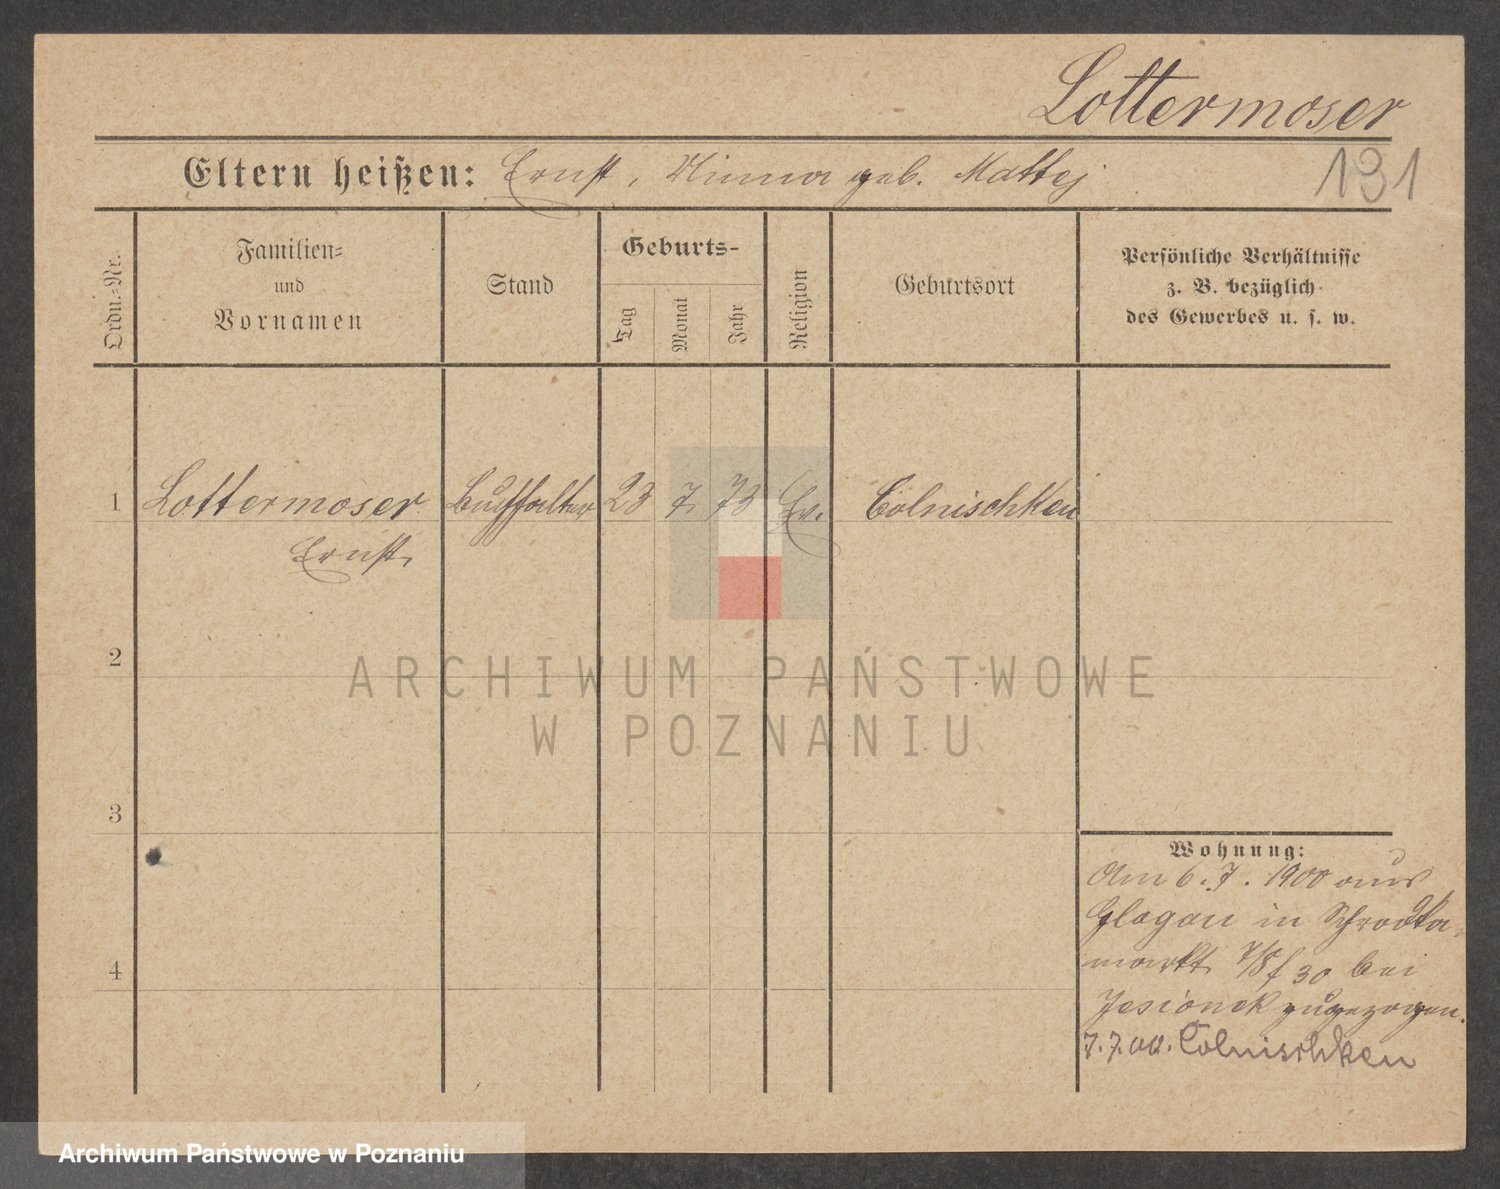 Lottermoser
Eltern heißen: Ernst, Minna geb. Mattej
191
Ordn.-Nr.
Familien-
und
Vornamen
Stand
Geburts-
Tag
Monat
Jahr
Religion
Geburtsort
Persönliche Verhältnisse
z. B. bezüglich
des Gewerbes u. s. w.
1 Lottermoser Buchhalter 23 7 73 Ev. Colnischken
Ernst
2
3
4
Wohnung:
Am 6.7.1900 aus
Glogau in Schrodka-
markt 7/8 f 30 bei
Jesionek zugezogen.
7.7.00. Colnischken
ARCHIWUM PAŃSTWOWE
W POZNANIU
Archiwum Państwowe w Poznaniu